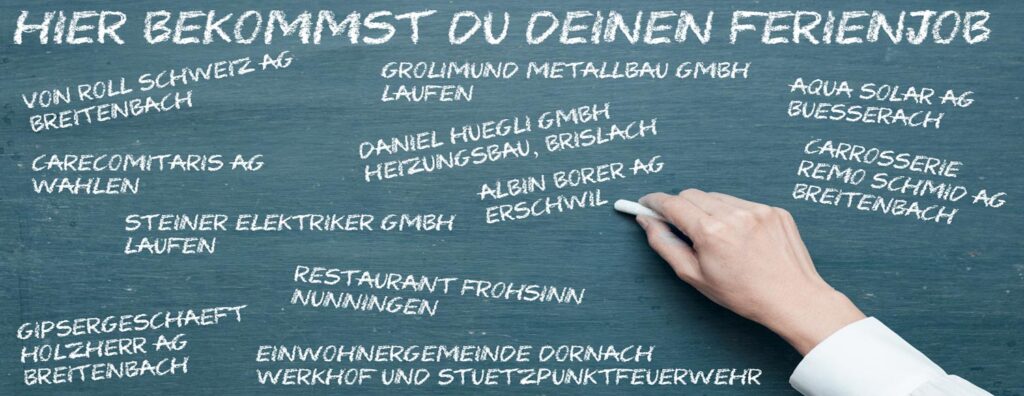 HIER BEKOMMST DU DEINEN FERIENJOB
VON ROLL SCHWEIZ AG
BREITENBACH
GROLIMUND METALLBAU GMBH
LAUFEN
AQUA SOLAR AG
BUESSERACH
DANIEL HUEGLI GMBH
HEIZUNGSBAU, BRISLACH
CARECOMITARIS AG
WAHLEN
ALBIN BORER AG
ERSCHWIL
CARROSSERIE
REMO SCHMID AG
BREITENBACH
STEINER ELEKTRIKER GMBH
LAUFEN
RESTAURANT FROHSINN
NUNNINGEN
GIPSERGESCHAEFT
HOLZHERR AG
BREITENBACH
EINWOHNERGEMEINDE DORNACH
WERKHOF UND STUETZPUNKTFEUERWEHR